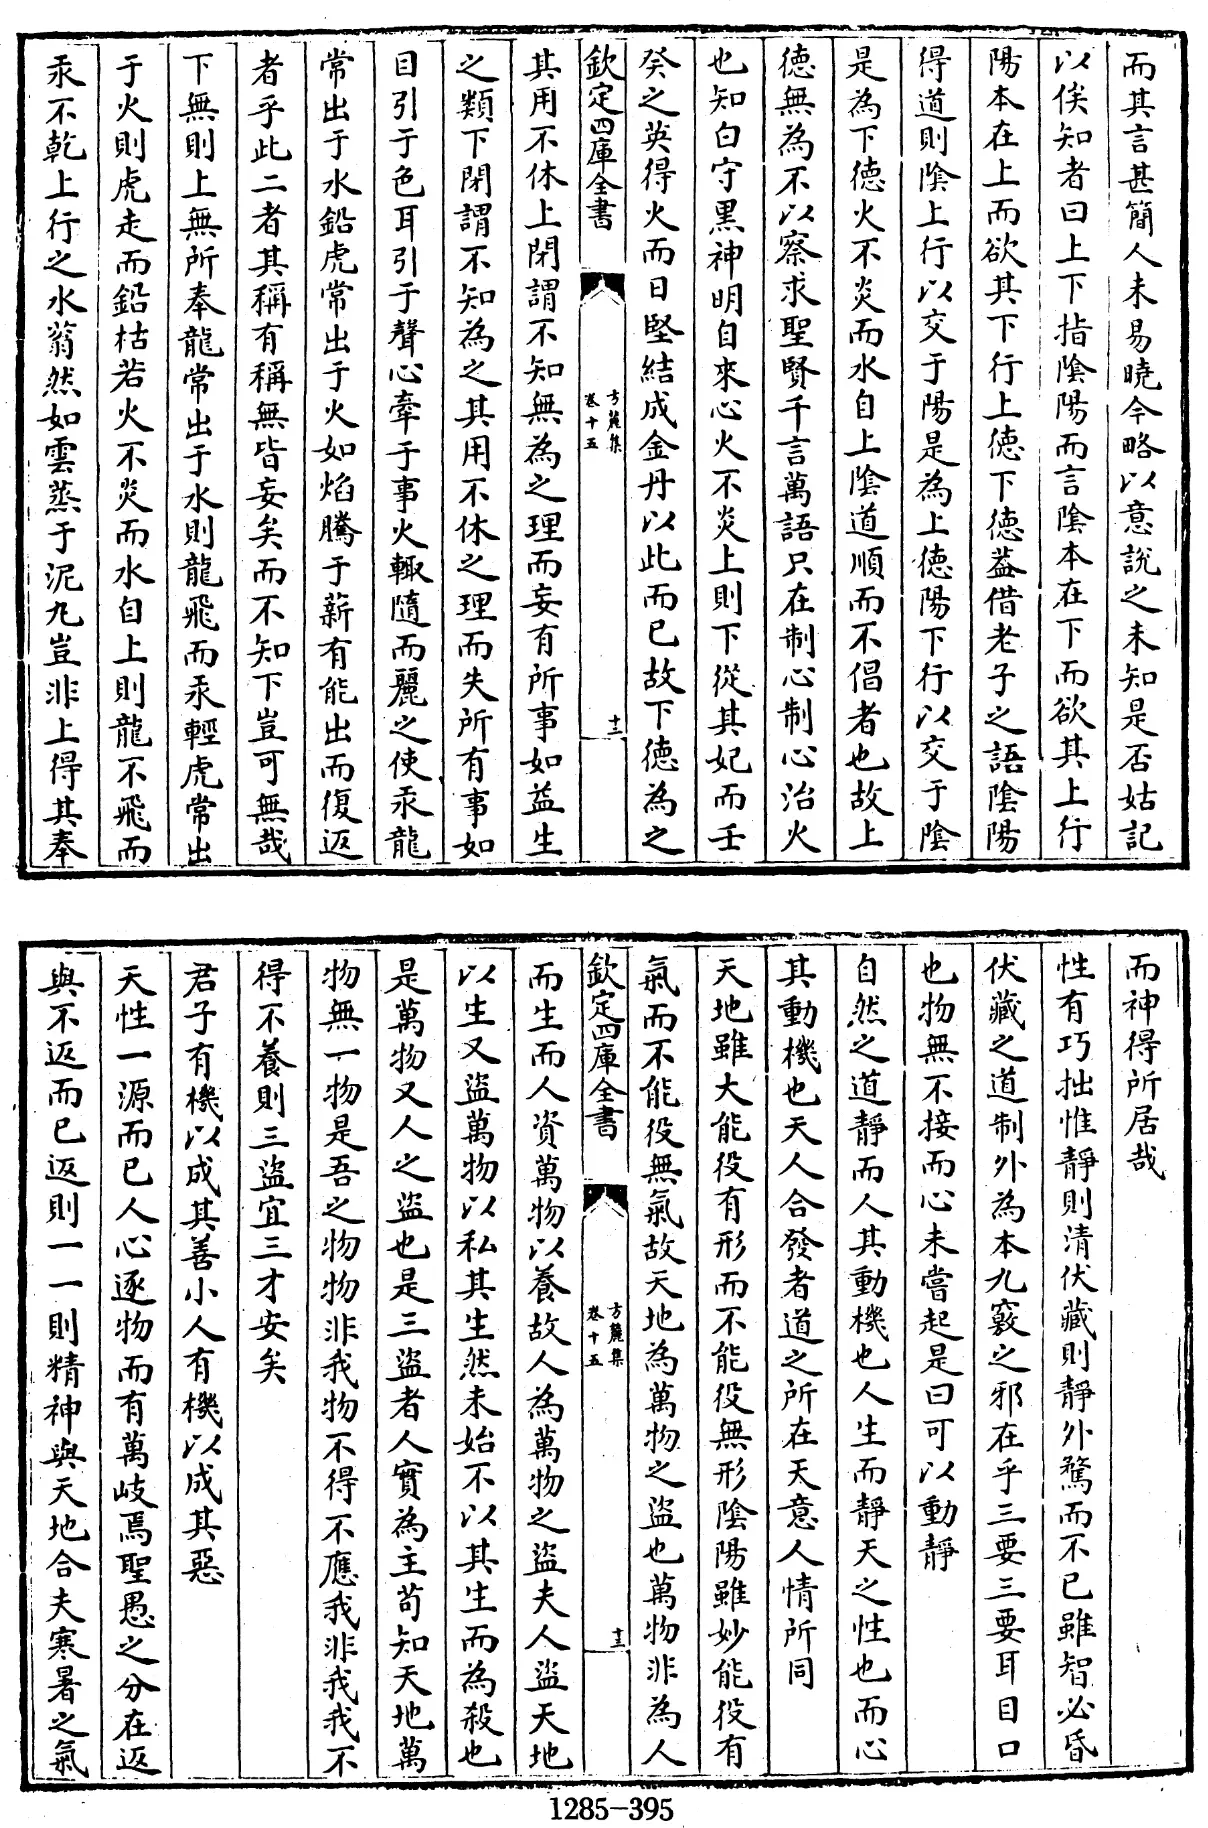 而其言甚簡人未易曉今略以意說之未知是否姑記
以俟知者曰上下指陰陽而言陰本在下而欲其上行
陽本在上而欲其下行上德下德蓋借老子之語陰陽
得道則陰上行以交于陽是為上德陽下行以交于陰
是為下德火不炎而水自上陰道順而不倡者也故上
德無為不以察求聖賢千言萬語只在制心制心治火
也知白守黑神明自來心火不炎上則下從其妃而壬
癸之英得火而日堅結成金丹以此而已故下德為之
欽定四庫全書
方麓集
卷十五
十二
其用不休上閉謂不知無為之理而妄有所事如益生
之類下閉謂不知為之其用不休之理而失所有事如
目引于色耳引于聲心牽于事火輙隨而麗之使汞龍
常出于水鉛虎常出于火如焰騰于薪有能出而復返
者乎此二者其稱有稱無皆妄矣而不知下豈可無哉
下無則上無所奉龍常出于水則龍飛而汞輕虎常出
于火則虎走而鉛枯若火不炎而水自上則龍不飛而
汞不乾上行之水滃然如雲蒸于泥九豈非上得其奉
而神得所居哉
性有巧拙惟靜則清伏藏則靜外騖而不已雖智必昏
伏藏之道制外為本九竅之邪在乎三要三要耳目口
也物無不接而心未嘗起是曰可以動靜
自然之道靜而人其動機也人生而靜天之性也而心
其動機也天人合發者道之所在天意人情所同
天地雖大能役有形而不能役無形陰陽雖妙能役有
氣而不能役無氣故天地為萬物之盜也萬物非為人
欽定四庫全書
方麓集
卷十五
十三
而生而人資萬物以養故人為萬物之盜夫人盜天地
以生又盜萬物以私其生然未始不以其生而為殺也
是萬物又人之盜也是三盜者人實為主苟知天地萬
物無一物是吾之物物非我物不得不應我非我我不
得不養則三盜宜三才安矣
君子有機以成其善小人有機以成其惡
天性一源而已人心逐物而有萬岐焉聖愚之分在返
與不返而已返則一一則精神與天地合夫寒暑之氣
1285-395